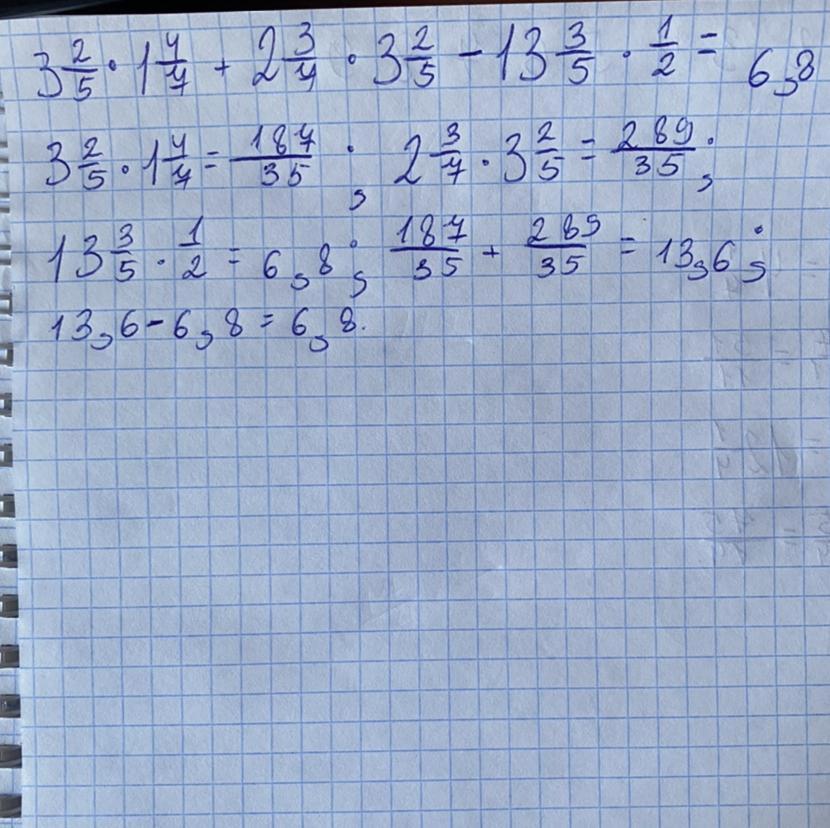 3 2/5 · 1 4/7 + 2 3/7 · 3 2/5 - 13 3/5 · 1/2 = 6,8
3 2/5 · 1 4/7 = 187/35 ; 2 3/7 · 3 2/5 = 289/35 ;
13 3/5 · 1/2 = 6,8 ; 187/35 + 289/35 = 13,6 ;
13,6 - 6,8 = 6,8.